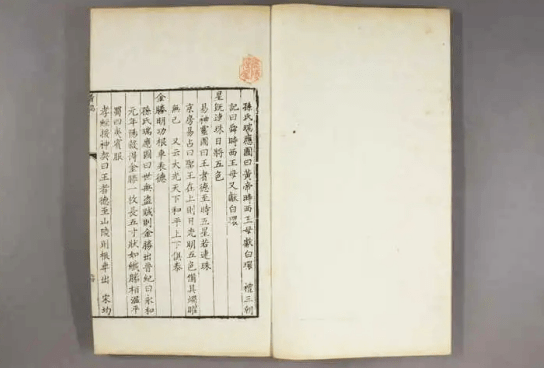 孫氏瑞應圖曰黃帝時西王母獻白環 禮三朝
記曰舜時西王母又獻白環
星既連珠日將五色
易袖靈圖曰王者德至時五星若連珠
京房易占曰聖王在上則日光明五色備具燭曜
無已 又云大光天下和平上下俱泰
金勝明功根車表德
孫氏瑞應圖曰世無盜賊則金勝出晉紀曰永和
元年陽穀得金勝一枚長五寸狀如織勝相溫平
蜀四夷賓服
孝經援神契曰王者德至山陵則根車出 宋均